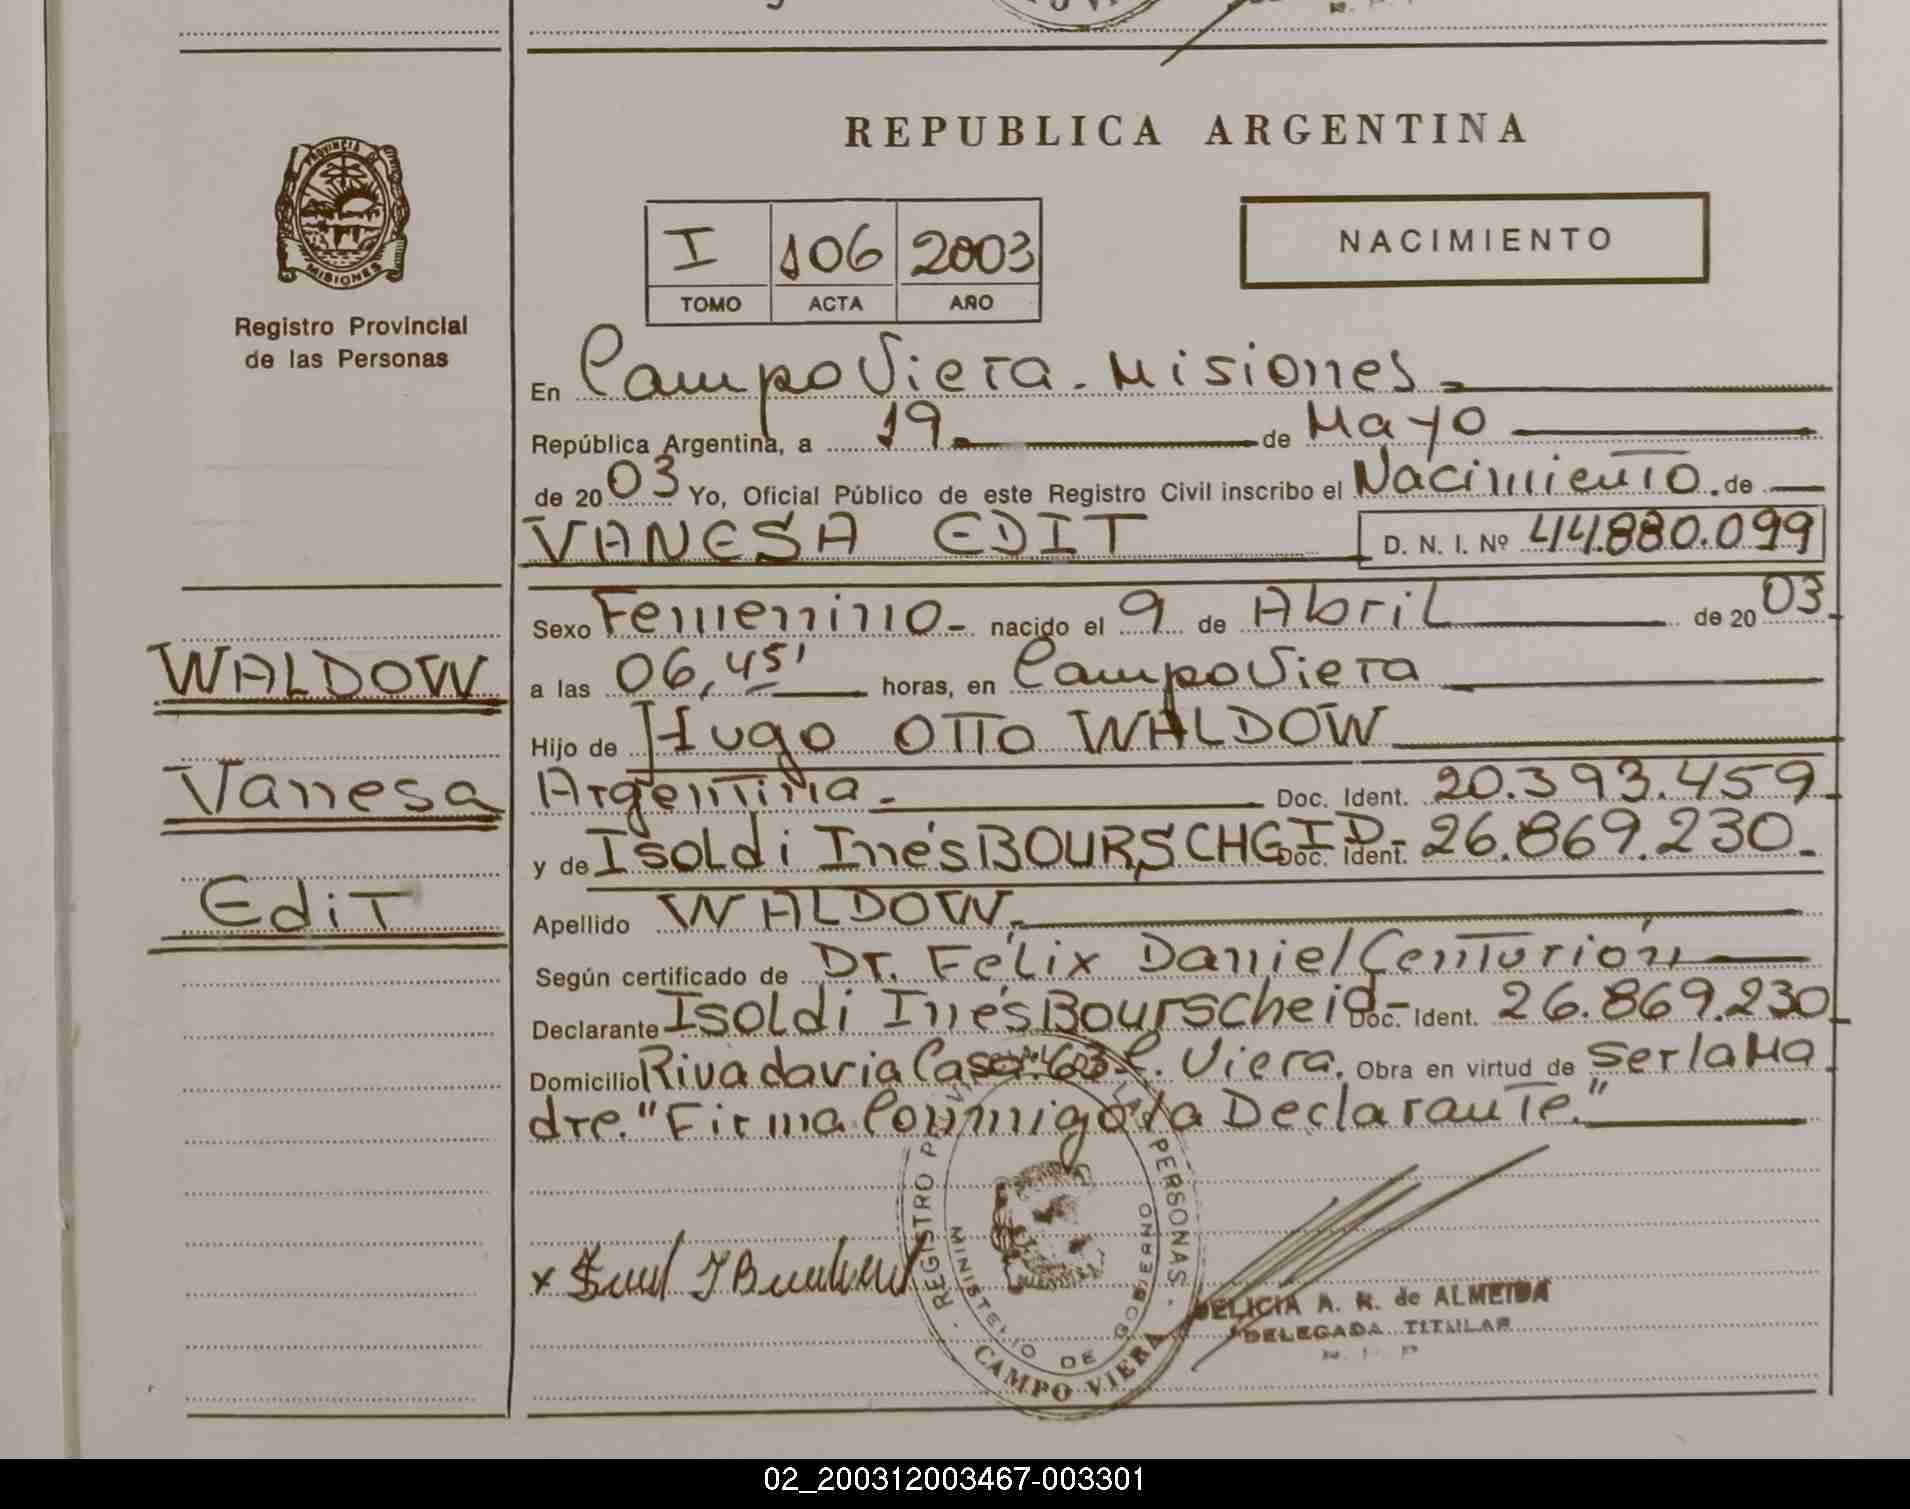 REPUBLICA ARGENTINA
PROVINCIA DE
MISIONES
Registro Provincial
de las Personas
I 106 2003
TOMO ACTA AÑO
NACIMIENTO
En Campo Viera - Misiones.-
República Argentina, a 19 de Mayo
de 2003 Yo, Oficial Público de este Registro Civil inscribo el Nacimiento de
VANESA EDIT D. N. I. Nº 44.880.099
Sexo Femenino - nacido el 9 de Abril de 2003
a las 06,45' horas, en Campo Viera
Hijo de Hugo Otto WALDOW
Argentina.- Doc. Ident. 20.393.459
y de Isoldi Inés BOURSCHEID- Doc. Ident. 26.869.230.
Apellido WALDOW.
Según certificado de Dr. Félix Daniel Centurión
Declarante Isoldi Inés Bourscheid- Doc. Ident. 26.869.230
Domicilio Rivadavia Casa 63 C. Viera. Obra en virtud de ser la Ma
dre. "Firma Conmigo la Declarante."
WALDOW
Vanesa
Edit
REGISTRO PERSONAS
MINISTERIO DE GOBIERNO
CAMPO VIERA
DELICIA A. R. de ALMEIDA
DELEGADA TITULAR
02_200312003467-003301